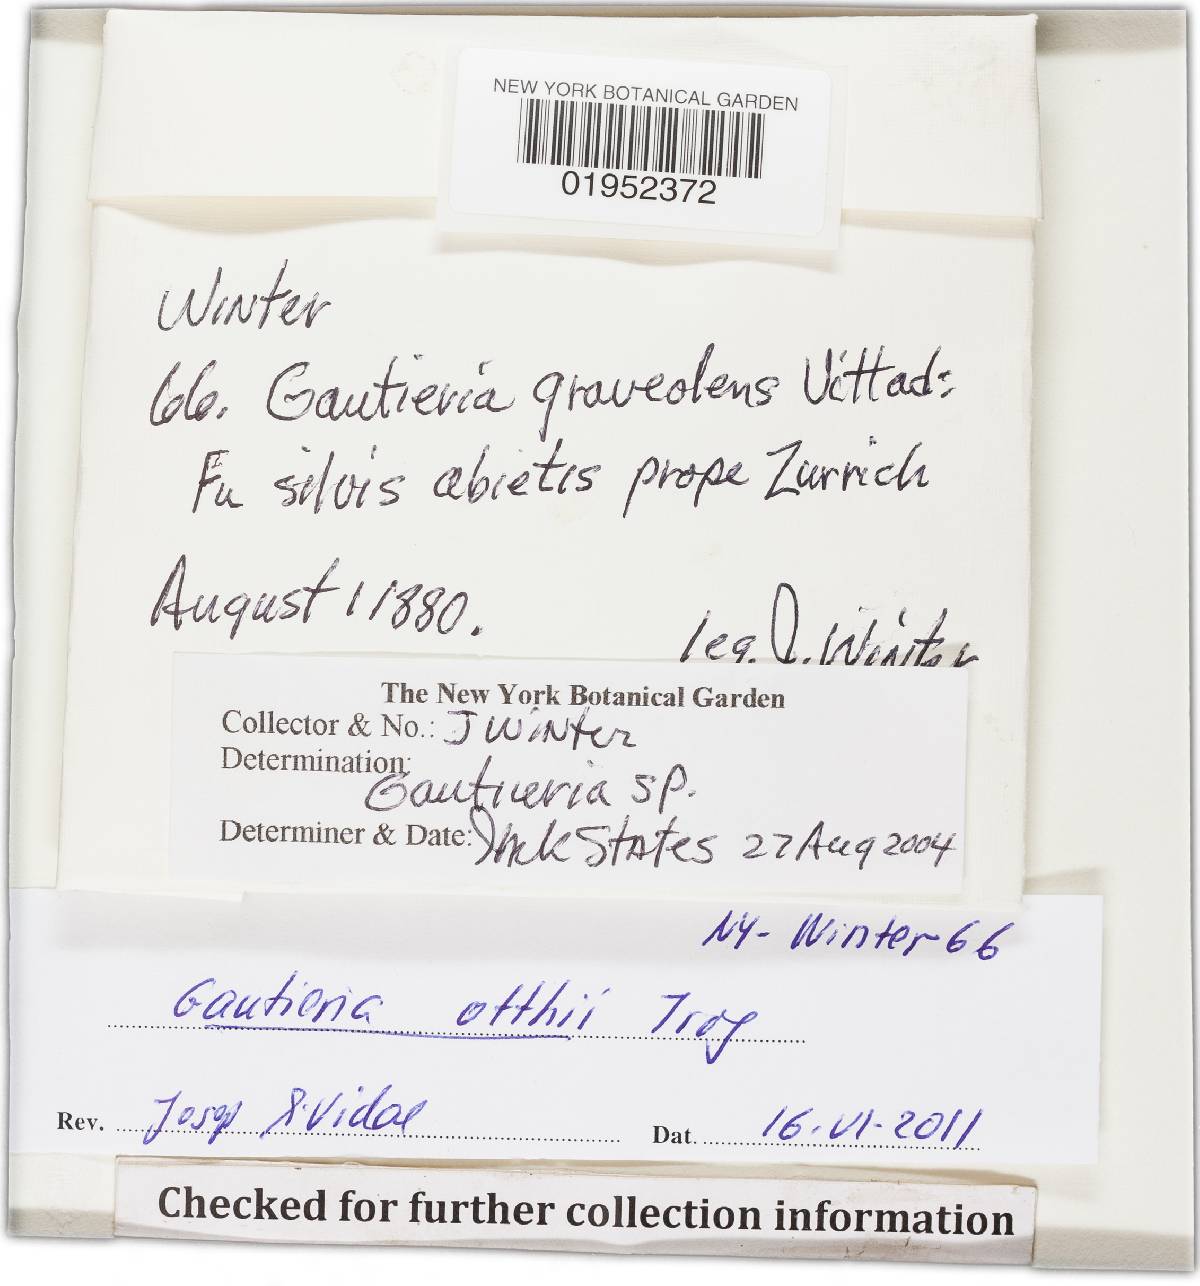 NEW YORK BOTANICAL GARDEN
01952372
Winter
66. Gautieria graveolens Vittad:
Fu silvis abietis prope Zurrich
August 1 1880.
leg. J. Winter
The New York Botanical Garden
Collector & No.: J Winter
Determination:
Gautieria sp.
Determiner & Date: Jack States 27 Aug 2004
NY- Winter 66
Gautieria otthii Trog
Rev. Josep Vidal Dat. 16-VI-2011
Checked for further collection information